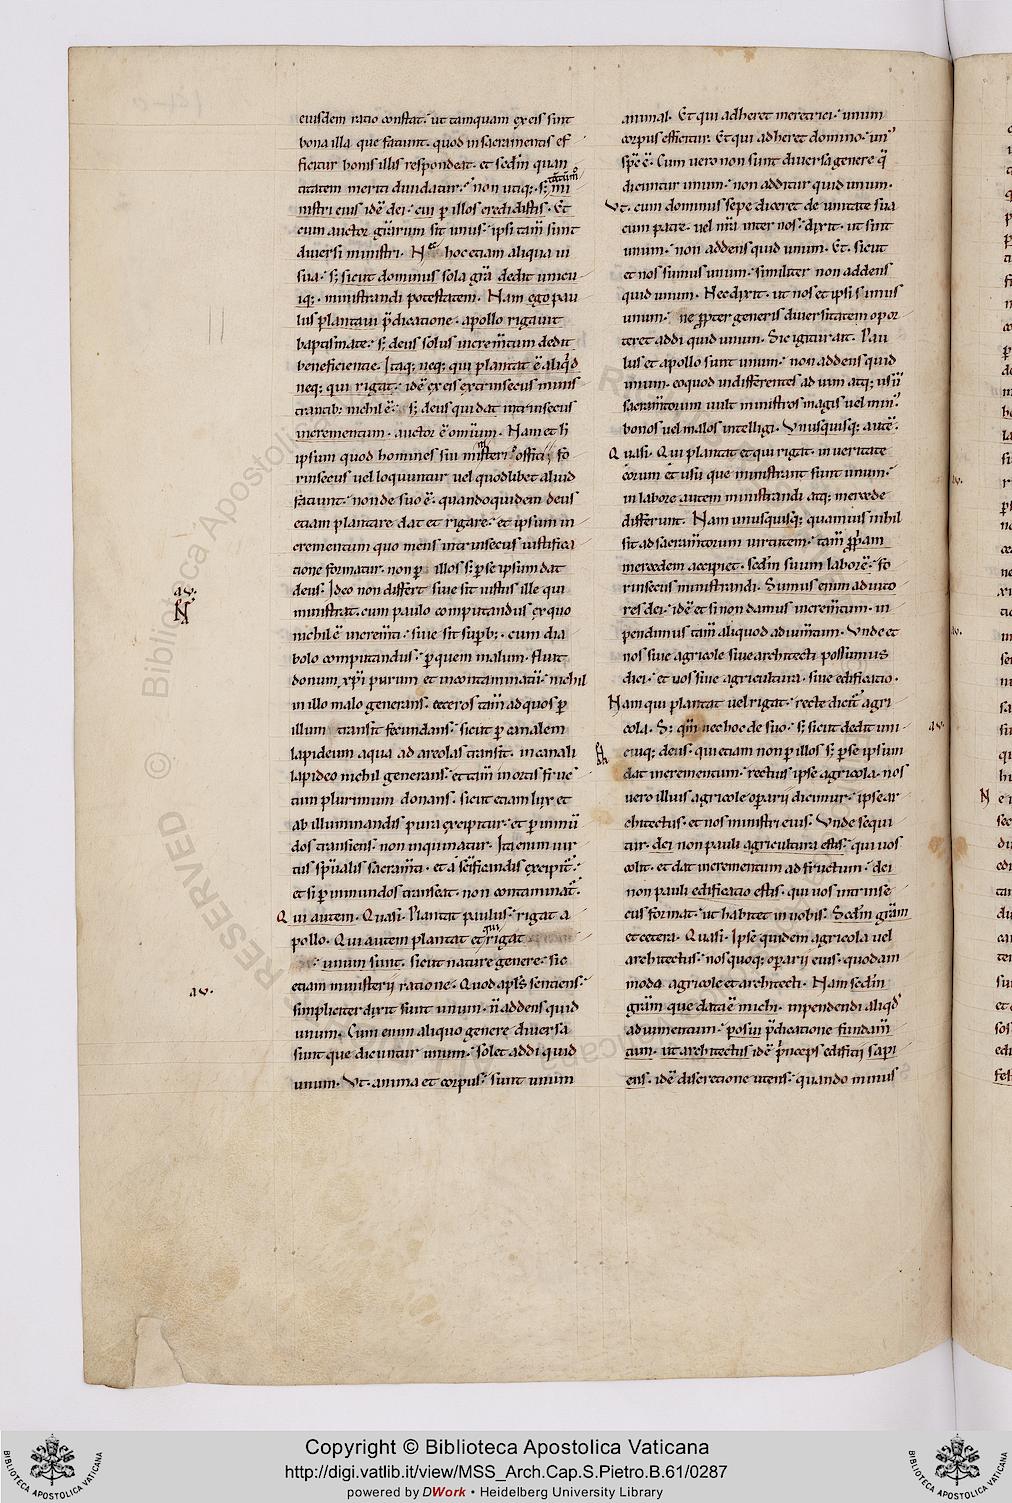 eiusdem ratio constat. ut tamquam ex eis sint
bona illa que faciunt. quod in sacramentis ef
ficitur bonis illis respondeat. et scdm quan
titatem meriti diuidatur. non utiq; s; mi
nistri eius idē dei. cui p illos credidistis. Et
cum auctor grarum sit unus. ipsi tam sunt
diuersi ministri. hoc etiam aliqua ui
sua. s; sicut dominus sola gra dedit unicu
iq;. ministrandi potestatem. Nam ego pau
lus plantaui pdicatione. apollo rigauit
baptismate. s; deus solus increm̄tum dedit
beneficentie. Itaq; neq; qui plantat ē aliqd
neq; qui rigat. idē ex eis extrinsecus minis
trantib; nichil ē. s; deus qui dat intrinsecus
incrementum. auctor ē omium. Nam et h
ipsum quod homines sui
rinsecus uel loquuntur uel quodlibet aliud
faciunt. non de suo ē. quandoquidem deus
etiam plantare dat et rigare. et ipsum in
crementum quo mens intrinsecus iustifica
tione formatur. non p illos s; p se ipsum dat
deus. Ideo non differt siue sit iustus ille qui
ministrat. cum paulo computandus ex quo
nichil ē increm̄ti. siue sit supb;. cum dia
bolo computandus. p quem malum. fluit
donum xpi purum et incontaminatū. nichil
in illo malo generans. ceteros tam ad quos p
illum transit fecundans. sicut p canalem
lapideum aqua ad areolas transit. in canali
lapideo nichil generans. et tam in ortis fruc
tum plurimum donans. sicut etiam lux et
ab illuminandis pura excipitur. et p inmū
dos transiens. non inquinatur. Ita enim uir
tus spiualis sacram̄ti. et a scificandis excipit.
et si p inmundos transeat. non contaminat.
Qui autem. Quasi. Plantat paulus. rigat a
pollo. Qui autem plantat et qui rigat
unum sunt. sicut nature genere. sic
etiam ministerij ratione. Quod apls sentiens.
simpliciter dixit sunt unum. n addens quid
unum. Cum enim aliquo genere diuersa
sunt que dicuntur unum. solet addi quid
unum. Vt. anima et corpus. sunt unum
animal. Et qui adheret meretrici. unum
corpus efficitur. Et qui adheret domino. un
spc ē. Cum uero non sunt diuersa genere q
dicuntur unum. non additur quid unum.
Vt. cum dominus sepe diceret de unitate sua
cum patre. uel nra inter nos. dixit. ut sint
unum. non addens quid unum. Et. sicut
et nos sumus unum. similiter non addens
quid unum. Nec dixit. ut nos et ipsi simus
unum. ne ppter generis diuersitatem opor
teret addi quid unum. Sic igitur ait. Pau
lus et apollo sunt unum. non addens quid
unum. eo quod indifferentes ad uim atq; usū
sacram̄torum uult ministros magis uel min.
bonos uel malos intelligi. Vnusquisq; autē.
Quasi. Qui plantat et qui rigat. in ueritate
eorum et usu que ministrant sunt unum.
in labore autem ministrandi atq; mercede
differunt. Nam unusquisq; quamuis nihil
sit ad sacram̄torum uirtutem. tam ppam
mercedem accipiet. scdm suum laborē. fo
rinsecus ministrandi. Sumus enim adiuto
res dei. idē et si non damus increm̄tum. in
pendimus tam aliquod adium̄tum. Vnde et
nos siue agricole siue architecti possumus
dici. et uos siue agricultura. siue edificatio.
Nam qui plantat uel rigat. recte dicit agri
cola. S; qm nec hoc de suo. s; sicut dedit uni
cuiq; deus. qui etiam non p illos s; p se ipsum
dat incrementum. rectius ipse agricola. nos
uero illius agricole operarij dicimur. ipse ar
chitectus. et nos ministri eius. Vnde sequi
tur. dei non pauli agricultura estis. qui uos
colit. et dat incrementum ad fructum. dei
non pauli edificatio estis. qui uos intrinse
cus format. ut habitet in nobis. Scdm gram
et cetera. Quasi. Ipse quidem agricola uel
architectus. nos quoq; operarij eius. quodam
modo agricole et architecti. Nam scdm
gram que data ē michi. inpendendi aliqd
adiumentum. posui pdicatione fundam̄
tum. ut architectus idē pnceps edificij sapi
ens. idē discretione utens. quando minus
Copyright © Biblioteca Apostolica Vaticana
http://digi.vatlib.it/view/MSS_Arch.Cap.S.Pietro.B.61/0287
powered by DWork • Heidelberg University Library
BIBLIOTECA APOSTOLICA VATICANA
BIBLIOTECA APOSTOLICA VATICANA